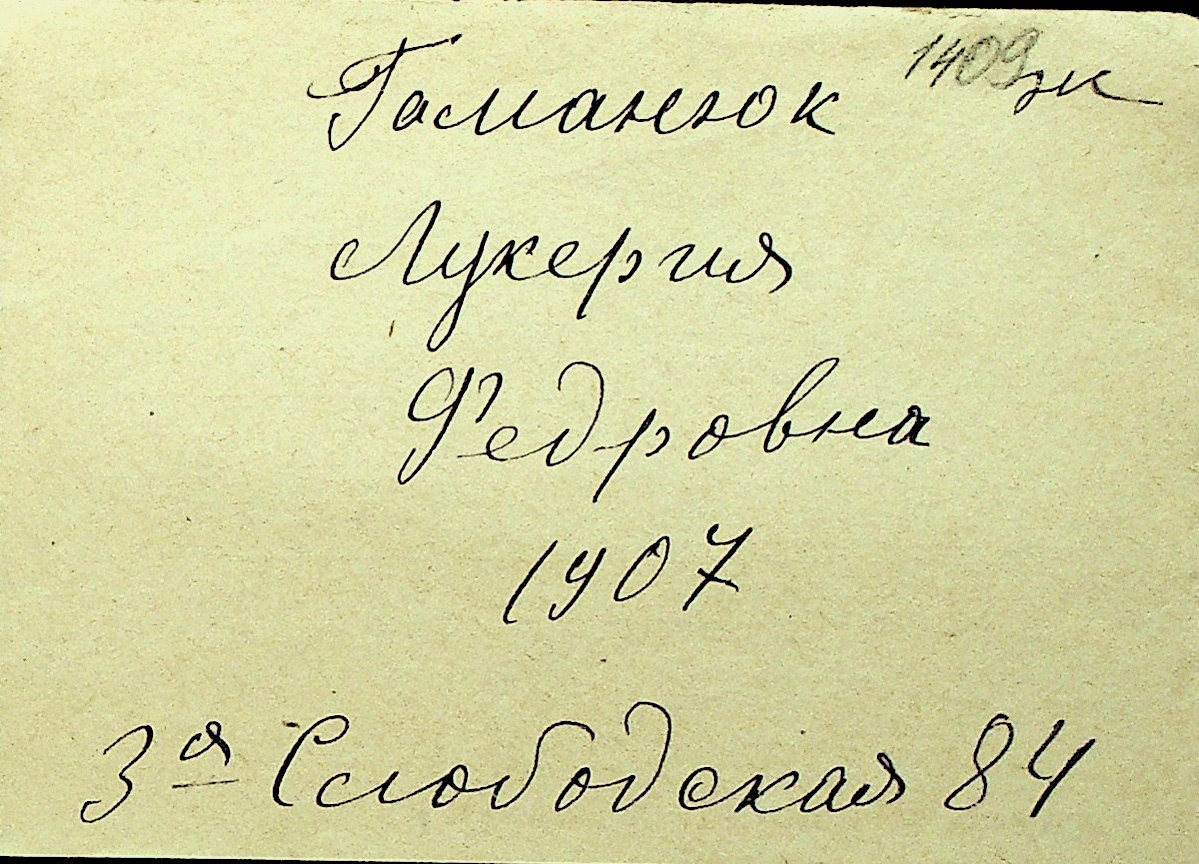 Гаманюк 1409 ж
Лукергия
Федровна
1907
3я Слободская 84